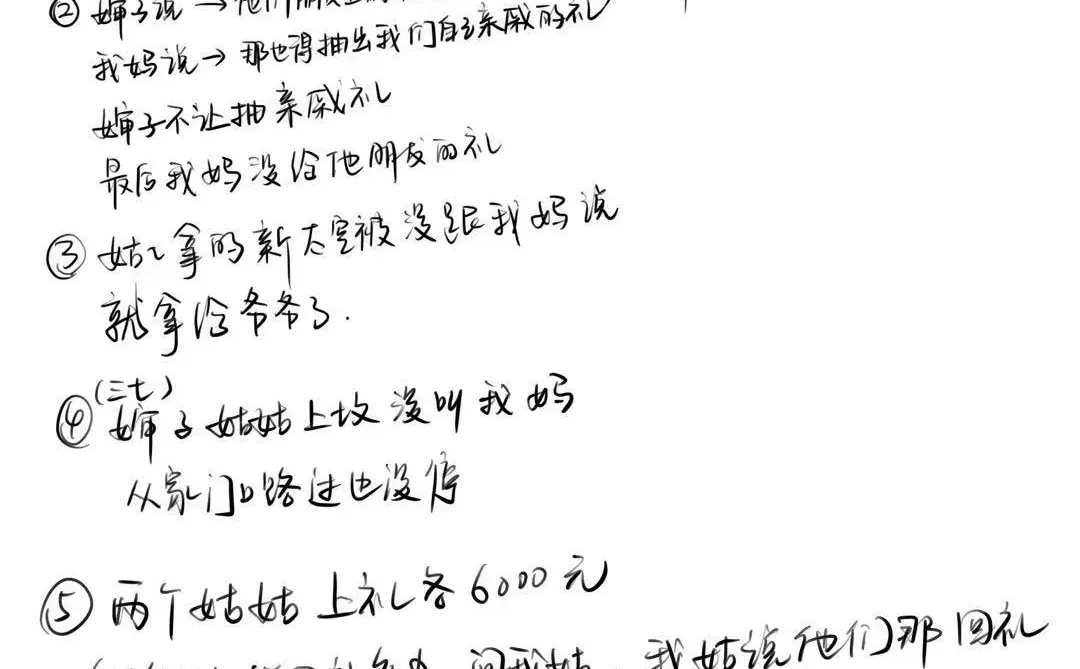 ② 婶子说 → 他们朋友
我妈说 → 那也得抽出我们自己亲戚的礼
婶子不让抽亲戚礼
最后我妈没给他朋友的礼
③ 姑姑拿的新太空被没跟我妈说
就拿给爷爷了.
(三七)
④ 婶子姑姑上坟没叫我妈
从家门口路过也没停
⑤ 两个姑姑上礼各6000元
问我姑 我姑说他们那回礼